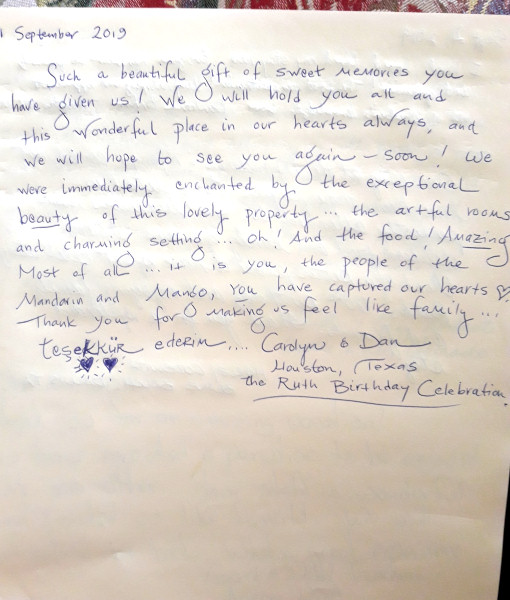 1 September 2019
Such a beautiful gift of sweet memories you
have given us! We will hold you all and
this wonderful place in our hearts always, and
we will hope to see you again - soon! We
were immediately enchanted by the exceptional
beauty of this lovely property... the artful rooms
and charming setting... oh! And the food! Amazing
Most of all ... it is you, the people of the
Mandarin and Mango, you have captured our hearts ♡.
Thank you for making us feel like family...
teşekkür ederim.... Carolyn & Dan
Houston, Texas
The Ruth Birthday Celebration.